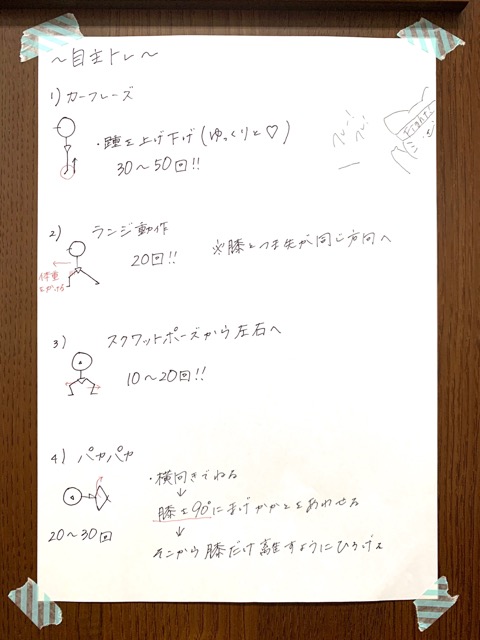 ～自主トレ～
1) カーフレーズ
・踵を上げ下げ(ゆっくりと♡)
30～50回!!
フレー!
フレー!
Fight!
2) ランジ動作
20回!!
※膝とつま先が同じ方向へ
体重
をかける
3) スクワットポーズから左右へ
10～20回!!
4) パカパカ
・横向きでねる
↓
膝を90°にまげかかとをあわせる
↓
そこから膝だけ離すようにひろげる
20～30回